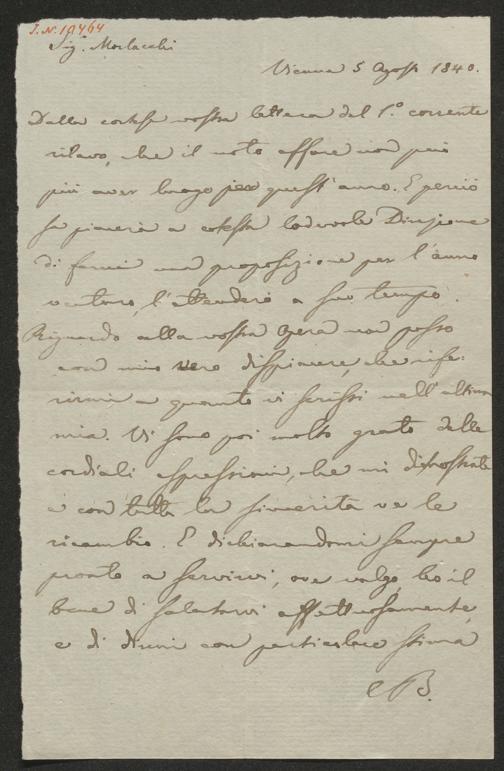 J.N. 19464
Sig. Morlacchi
Vienna 5 Agosto 1840.
Dalla cortese vostra lettera del 1.º corrente
rilevo, che il noto affare non può
più aver luogo per quest'anno. E perciò
se piacerà a cotesta lodevole Direzione
di farmi una proposizione per l'anno
venturo, l'attenderò a suo tempo.
Riguardo alla vostra Opera non posso
con mio vero dispiacere, che rife-
rirmi a quanto vi scrissi nell'ultima
mia. Vi sono poi molto grato delle
cordiali espressioni, che mi dimostrate
e con tutta la sincerità ve le
ricambio. E dichiarandomi sempre
pronto a servirvi, ove valgo ho il
bene di salutarvi affettuosamente,
e di dirmi con particolare stima
B.